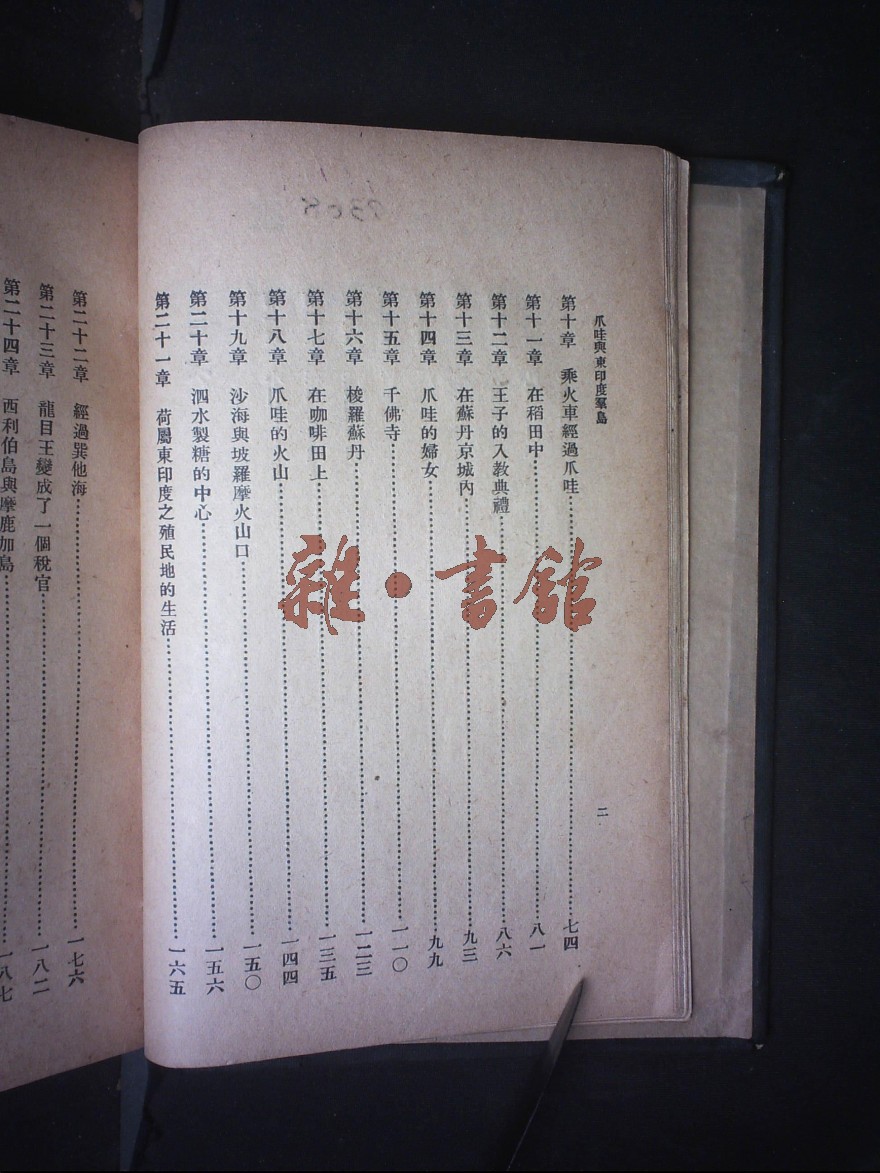 爪哇與東印度羣島
二
第十章 乘火車經過爪哇 七四
第十一章 在稻田中 八一
第十二章 王子的入教典禮 八六
第十三章 在蘇丹京城內 九三
第十四章 爪哇的婦女 九九
第十五章 千佛寺 一一〇
第十六章 梭羅蘇丹 一二三
第十七章 在咖啡田上 一三五
第十八章 爪哇的火山 一四四
第十九章 沙海與坡羅摩火山口 一五〇
第二十章 泗水製糖的中心 一五六
第二十一章 荷屬東印度之殖民地的生活 一六五
第二十二章 經過巽他海 一七六
第二十三章 龍目王變成了一個稅官 一八二
第二十四章 西利伯島與摩鹿加島 一八七
雜·書館